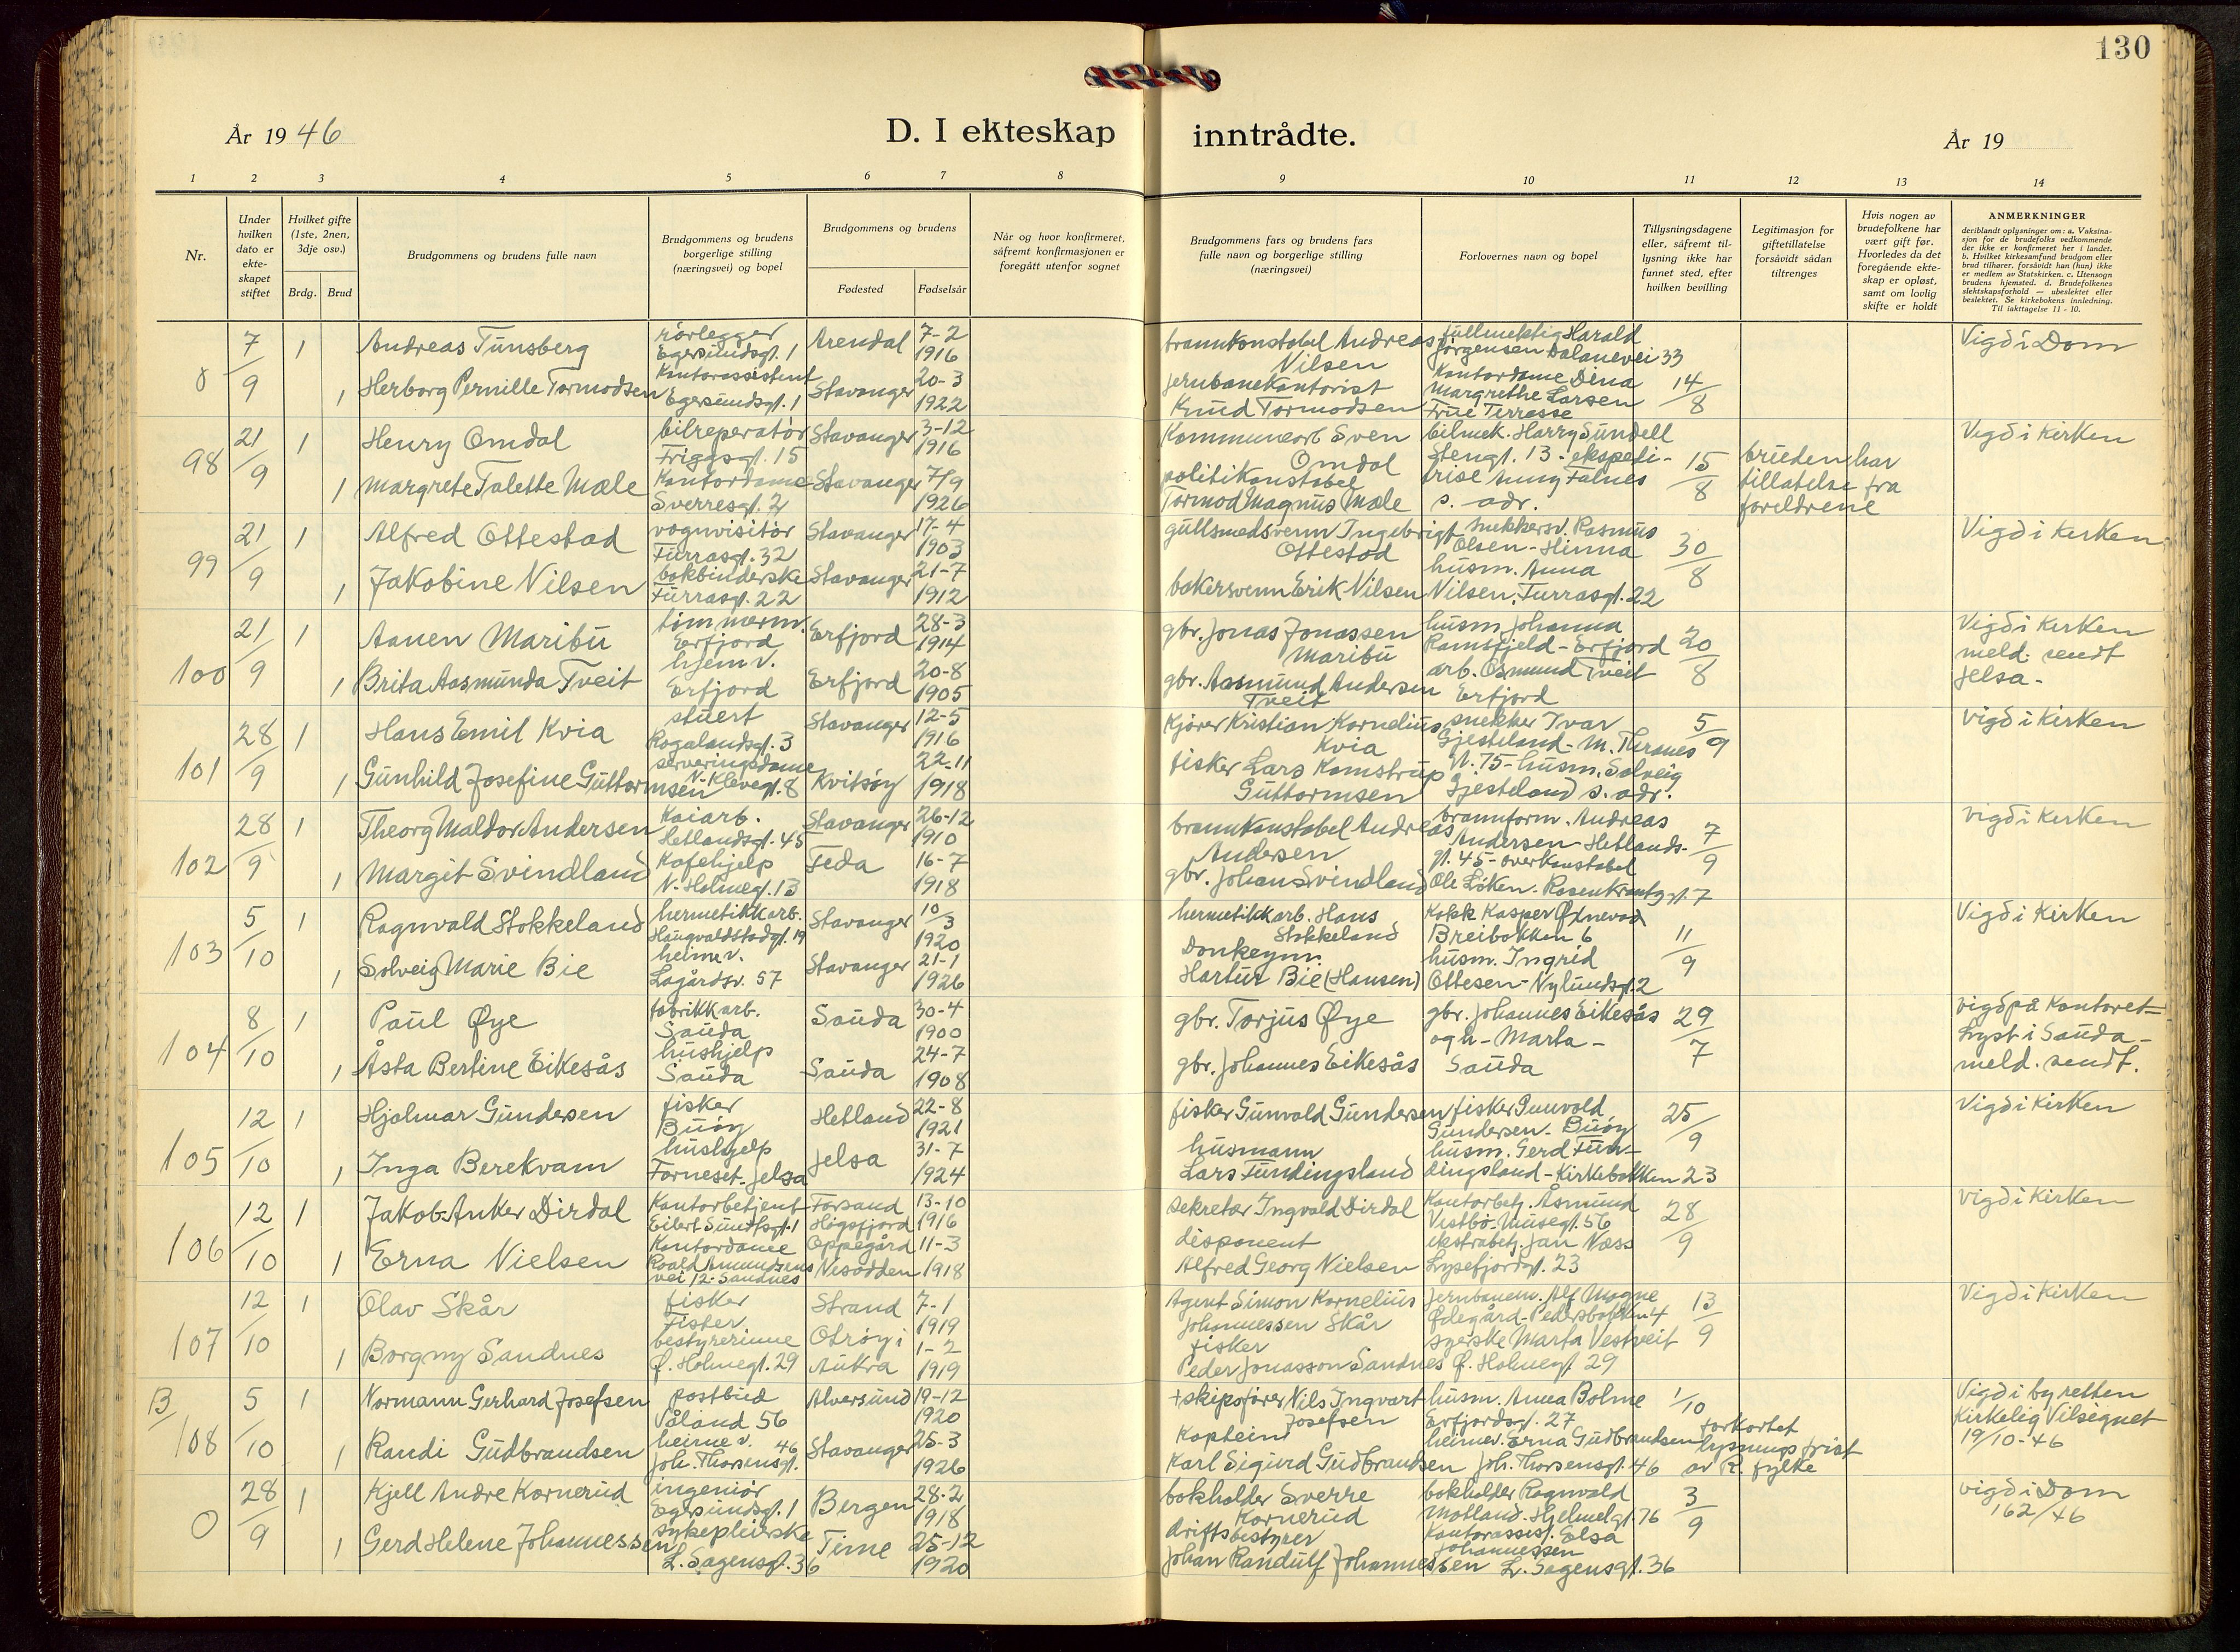 130
År 1946
D. I ekteskap inntrådte.
År 19
1 2 3 4 5 6 7 8 9 10 11 12 13 14
Nr.
Under hvilken dato er ekte-skapet stiftet
Hvilket gifte (1ste, 2nen, 3dje osv.)
Brdg. Brud
Brudgommens og brudens fulle navn
Brudgommens og brudens borgerlige stilling (næringsvei) og bopel
Brudgommens og brudens
Fødested Fødselsår
Når og hvor konfirmeret, såfremt konfirmasjonen er foregått utenfor sognet
Brudgommens fars og brudens fars fulle navn og borgerlige stilling (næringsvei)
Forlovernes navn og bopel
Tillysningsdagene eller, såfremt til-lysning ikke har funnet sted, efter hvilken bevilling
Legitimasjon for giftetillatelse forsåvidt sådan tiltrenges
Hvis nogen av brudefolkene har vært gift før. Hvorledes da det foregående ekte-skap er opløst, samt om lovlig skifte er holdt
ANMERKNINGER
deriblandt oplysninger om: a. Vaksina-sjon for de brudefolks vedkommende der ikke er konfirmeret her i landet. b. Hvilket kirkesamfund brudgom eller brud tilhører, forsåvidt han (hun) ikke er medlem av Statskirken. c. Utensogn brudens hjemsted. d. Brudefolkenes slektskapsforhold — ubeslektet eller beslektet. Se kirkebokens innledning. Til iakttagelse 11 - 10.
0 7/9 1 Andreas Tünsberg rörlegger Egersundsgt. 1 Arendal 7-2 1916 brannkonstabel Andreas Nilsen fullmektig Harald Jörgensen Dalanevei 33 14/8 Vigd i Dom
1 Herborg Pernille Tormodsen Kontorassistent Egersundsgt. 1 Stavanger 20-3 1922 jernbanekontorist Knud Tormodsen Kontordame Dina Margrethe Larsen Frue Terrasse
98 21/9 1 Henry Omdal bilreperatör Friggsgt. 15 Stavanger 3-12 1916 Kommunearb Sven Omdal bilmek. Harry Sundell Stengt. 13 - ekspedi- 15/8 bruden har tillatelse fra foreldrene Vigd i Kirken
1 Margrete Talette Mæle Kontordame Sverresgt. 2 Stavanger 7/9 1926 politikonstabel Tormod Magnus Mæle trise Anny Falnes s. adr.
99 21/9 1 Alfred Ottestad vognvisitör Furrasgt. 32 Stavanger 17-4 1903 gullsmedsvenn Ingebrigt Ottestad snekkersv. Rasmus Olsen - Hinna 30/8 Vigd i Kirken
1 Jakobine Nilsen bokbinderske Furrasgt. 22 Stavanger 21-7 1912 bakersvenn Erik Nilsen husm. Anna Nilsen, Furrasgt. 22
100 21/9 1 Aanen Maribu tömmerm. Erfjord Erfjord 28-3 1914 gbr. Jonas Jonassen Maribu husm Johanna Ramsfjeld - Erfjord 20/8 Vigd i Kirken meld. sendt Jelsa -
1 Brita Aasmunda Tveit hjemv. Erfjord Erfjord 20-8 1905 gbr. Aasmund Andersen Tveit arb. Osmund Tveit Erfjord
101 28/9 1 Hans Emil Kvia stuert Rogalandsgt. 3 Stavanger 12-5 1916 Kjörer Kristian Kornelius Kvia snekker Ivar Gjesteland - M. Thranes 5/9 Vigd i Kirken
1 Gunhild Josefine Guttormsen serveringsdame N. Klevegt. 8 Kvitsöy 22.11 1918 fisker Lars Komstrup Guttormsen gt. 75 - husm. Solveig Gjesteland s. adr.
102 28/9 1 Theorg Maldor Andersen Kaiarb. Hetlandsgt. 45 Stavanger 26-12 1910 brannkonstabel Andreas Andersen brannform. Andreas Andersen - Hetlands- 7/9 vigd i Kirken
1 Margit Svindland Kafehjelp N. Holmegt. 13 Feda 16-7 1918 gbr. Johan Svindland gt. 45 - overkonstabel Ole Löken. Rosenkrantzgt. 7
103 5/10 1 Ragnvald Stokkeland hermetikkarb. Haugvaldstadgt. 19 Stavanger 10/3 1920 hermetikkarb. Hans Stokkeland Kokk Kasper Øxnevad Breibakken 6 11/9 Vigd i Kirken
1 Solveig Marie Bie heimev. Lagårdsv. 57 Stavanger 21-1 1926 Donkeym. Hartur Bie (Hansen) husm. Ingrid Ottesen - Nylundsgt. 2
104 8/10 1 Paul Øye fabrikkarb. Sauda Sauda 30-4 1900 gbr. Torjus Øye gbr. Johannes Eikesås 29/7 vigd på Kontoret - Lyst i Sauda - meld. sendt.
1 Åsta Bertine Eikesås hushjelp Sauda Sauda 24-7 1908 gbr. Johannes Eikesås og h - Marta - Sauda
105 12/10 1 Hjalmar Gundersen fisker Buöy Hetland 22-8 1921 fisker Gunvald Gundersen fisker Gunvald Gundersen - Buöy 25/9 Vigd i Kirken
1 Inga Berekvam hushjelp Forneset - Jelsa Jelsa 31-7 1924 husmann Lars Fundingsland husm. Gerd Fun- dingsland - Kirkebakken 23
106 12/10 1 Jakob Anker Dirdal Kontorbetjent Eilert Sundtsgt. 1 Forsand Högsfjord 13-10 1916 sekretær Ingvald Dirdal Kontorbetj. Åsmund Vestbö. Musegt. 56 28/9 vigd i Kirken
1 Erna Nielsen Kontordame Roald Amundsens vei 12 - Sandnes Oppegård Nesodden 11-3 1918 disponent Alfred Georg Nielsen ekstrabetj. Jan Næss Lysefjordgt. 23
107 12/10 1 Olav Skår fisker Strand 7-1 1919 Agent Simon Kornelius Johannessen Skår jernbanem. Alf Magne Ødegård - Pedersbakken 4 13/9 Vigd i Kirken
1 Borgny Sandnes bestyrerinne Ø. Holmegt. 29 Otröy i Aukra 1-2 1919 fisker Peder Jonasson Sandnes syerske Marta Vestveit Ø. Holmegt 29
B/108 5/10 1 Normann Gerhard Josefsen postbud Våland 56 Alversund 19-12 1920 + skipsförer Nils Ingvart Josefsen husm. Anna Bolme Erfjordsgt. 27 1/10 Vigd i byretten Kirkelig Vilsignet 19/10-46
1 Randi Gudbrandsen heimev. Joh. Thorsensgt. 46 Stavanger 25-3 1926 Kaptein Karl Sigurd Gudbrandsen heimev. Erna Gudbrandsen Joh. Thorsensgt. 46 forkortet lysnings frist av R. fylke
0 28/9 1 Kjell Andre Kornerud ingeniör Egersundsgt. 1 Bergen 28-2 1918 bokholder Sverre Kornerud bokholder Ragnvald Motland. Hjelmelgt. 76 3/9 vigd i Dom 162/46
1 Gerd Helene Johannessen sykepleierske L. Sagensgt. 36 Time 25-12 1920 driftsbestyrer Johan Randulf Johannessen Kontorassist. Elsa Johannessen L. Sagensgt. 36